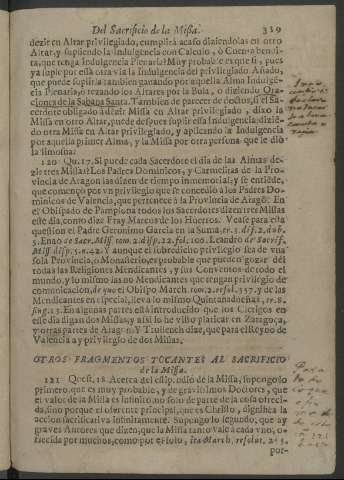 Del Sacrificio de la Missa. 319
dezir en Altar privilegiado, cumplirà acaso diziendolas en otro
Altar, y supliendo la Indulgencia con Calculo, ò Cuenta bendi-
ta, que tenga Indulgencia Plenaria? Muy probable es que si, pues
ya suple por essa otra via la Indulgencia del privilegiado. Añado,
que puede suplirla tambien ganando por aquella Alma Indulgē-
cia Plenaria, ò rezando los Altares por la Bula, ò diziendo Ora-
ciones de la Sabana Santa. Tambien de parecer de doctos, si el Sa-
cerdote obligado à dezir Missa en Altar privilegiado, dixo la
Missa en otro Altar, puede despues suplir essa Indulgencia, dizie-
do otra Missa en Altar privilegiado, y aplicando la Indulgencia
por aquella primer Alma, y la Missa por otra persona que le diò
la limosna?
120 Qu. 17. Si puede cada Sacerdote el dia de las Almas de-
zir tres Missas? Los Padres Dominicos, y Carmelitas de la Pro-
vincia de Aragon las dizen de tiempo inmemorial; y se entiēde,
que començò por vn privilegio que se concediò à los Padres Do-
minicos de Valencia, que pertenece à la Provincia de Aragō. En
el Obispado de Pamplona todos los Sacerdotes dizen tres Missas
este dia, como dize Fray Marcos de los Huertos. Vease para esta
question el Padre Geronimo Garcia en la Suma, tr. 3. dif. 2. dub.
5. Enao de Sacr. Miss. tom. 2. disp. 22. fol. 100. Leandro de Sacrif.
Miss. disp. 5. n. 42. Y aunque el sobredicho privilegio sea de vna
sola Provincia, ò Monasterio, es probable que pueden gozar dèl
todas las Religiones Mendicantes, y sus Conventos de todo el
mundo, y lo mismo las no Mendicantes que tengan privilegio de
comunicacion, de quo el Obispo March. tom. 2. resol. 357. y de las
Mendicantes en especial, lleva lo mismo Quintanadueñas, tr. 8.
sing. 13. En algunas partes està introducido que los Clerigos en
esse dia digan dos Missas, y assi lo he visto platicar en Zaragoça,
y otras partes de Aragon. Y Trullench dize, que para el Reyno de
Valencia ay privilegio de dos Missas.
OTROS FRAGMENTOS TOCANTES AL SACRIFICIO
de la Missa.
121 Quest. 18. Acerca del estipendio de la Missa, supongo lo
primero, que es muy probable, y de gravissimos Doctores, que
el valor de la Missa es infinito, no solo de parte de la cosa ofreci-
da, sino porque el oferente principal, que es Christo, dignifica la
accion sacrificativa infinitamente. Supongo lo segundo, que ay
graves Autores que dizen, que la Missa tanto vale à cada vno, o-
frecida por muchos, como por el solo, ita March. resolut. 213.
por-